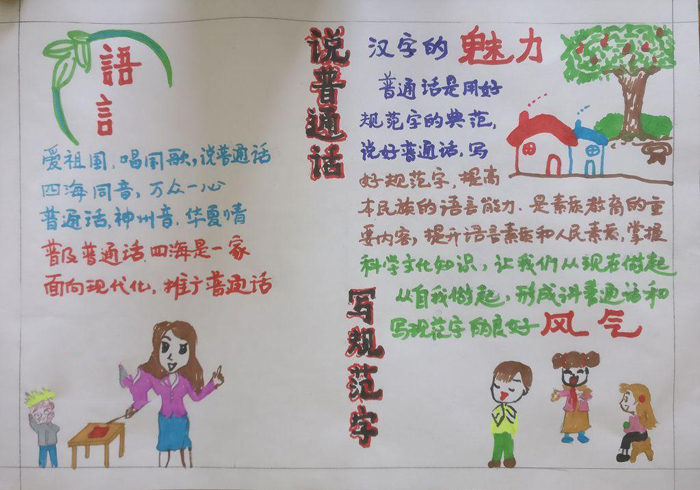 語言
爱祖国,唱国歌,说普通话
四海同音,万众一心
普通话,神州音.华夏情
普及普通话.四海是一家
面向现代化,推广普通话
说普通话
写规范字
汉字的魅力
普通话是用好
规范字的典范,
说好普通话,写
好规范字,提高
本民族的语言能力.是素质教育的重
要内容,提升语言素质和人民素质,掌握
科学文化知识,让我们从现在做起
从自我做起,形成讲普通话和
写规范字的良好风气